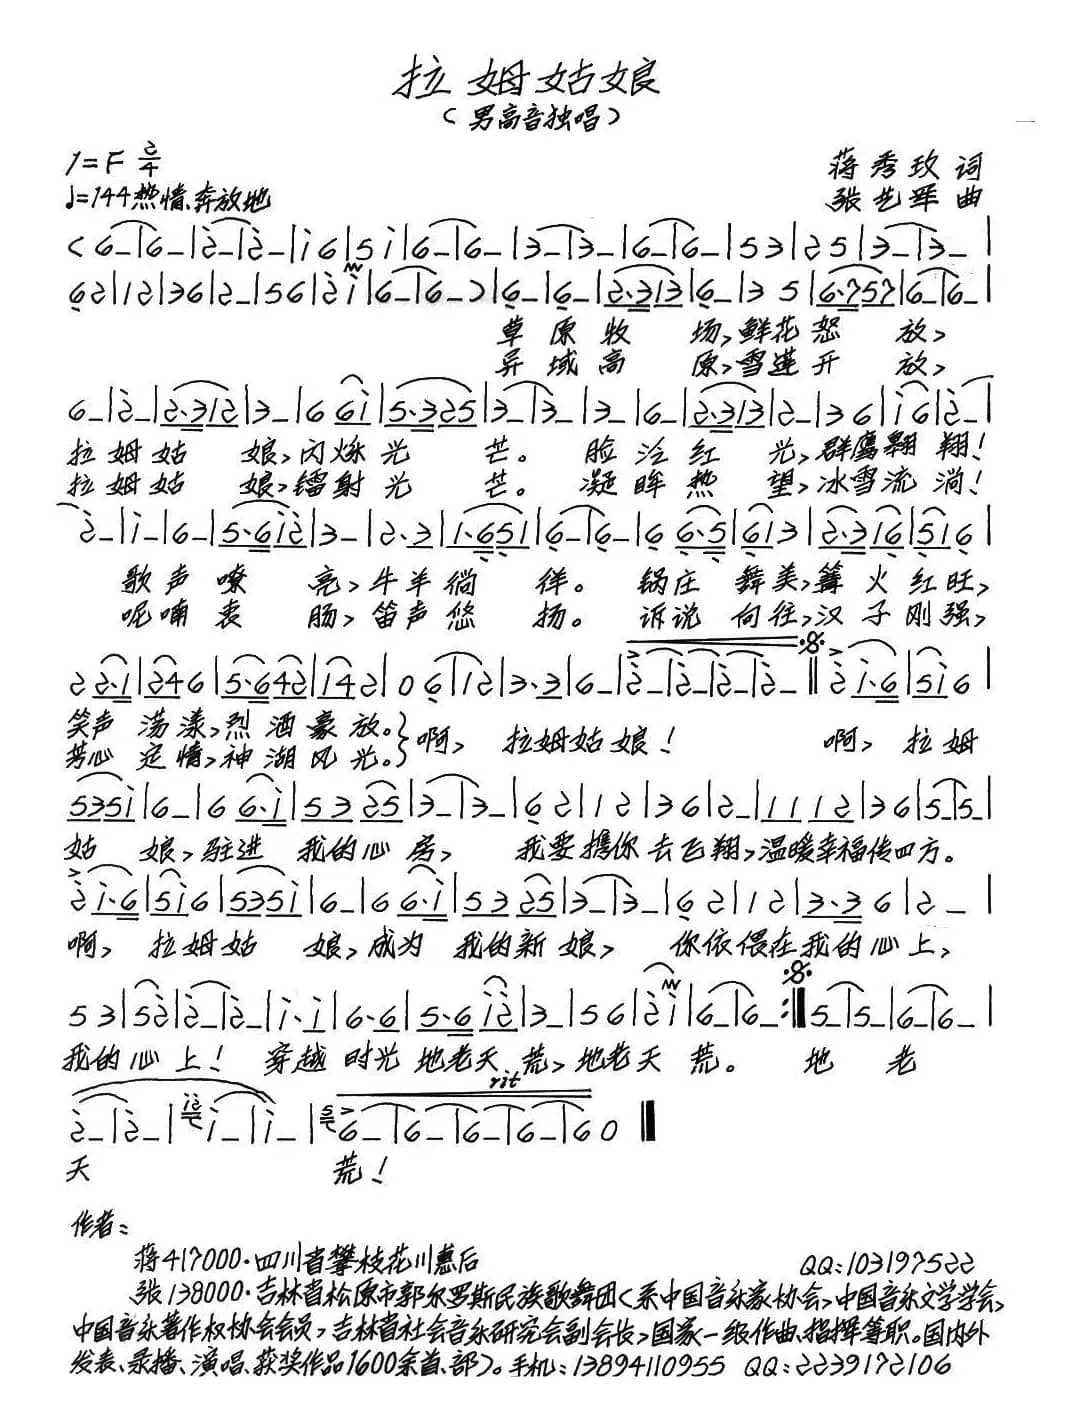 拉姆姑娘
（男高音独唱）
1=F 2/4
蒋秀玫 词
♩=144 热情、奔放地
张艺军 曲
草原牧场，鲜花怒放，
异域高原，雪莲开放，
拉姆姑娘，闪烁光芒。脸泛红光，群鹰翱翔！
拉姆姑娘，镭射光芒。凝眸热望，冰雪流淌！
歌声嘹亮，牛羊徜徉。锅庄舞美，篝火红旺，
呢喃衷肠，笛声悠扬。诉说向往，汉子刚强，
笑声荡漾，烈酒豪放。
芳心定情，神湖风光。
啊，拉姆姑娘！ 啊，拉姆
姑娘，驻进我的心房， 我要携你去飞翔，温暖幸福传四方。
啊，拉姆姑娘，成为我的新娘， 你依偎在我的心上，
我的心上！穿越时光地老天荒，地老天荒。 地老
rit
天荒！
作者：
蒋417000·四川省攀枝花川惠后 QQ:103197522
张138000·吉林省松原市郭尔罗斯民族歌舞团（系中国音乐家协会，中国音乐文学学会，
中国音乐著作权协会会员，吉林省社会音乐研究会副会长，国家一级作曲、指挥等职。国内外
发表、录播、演唱、获奖作品1600余首、部）。手机：13894110955 QQ:2239172106